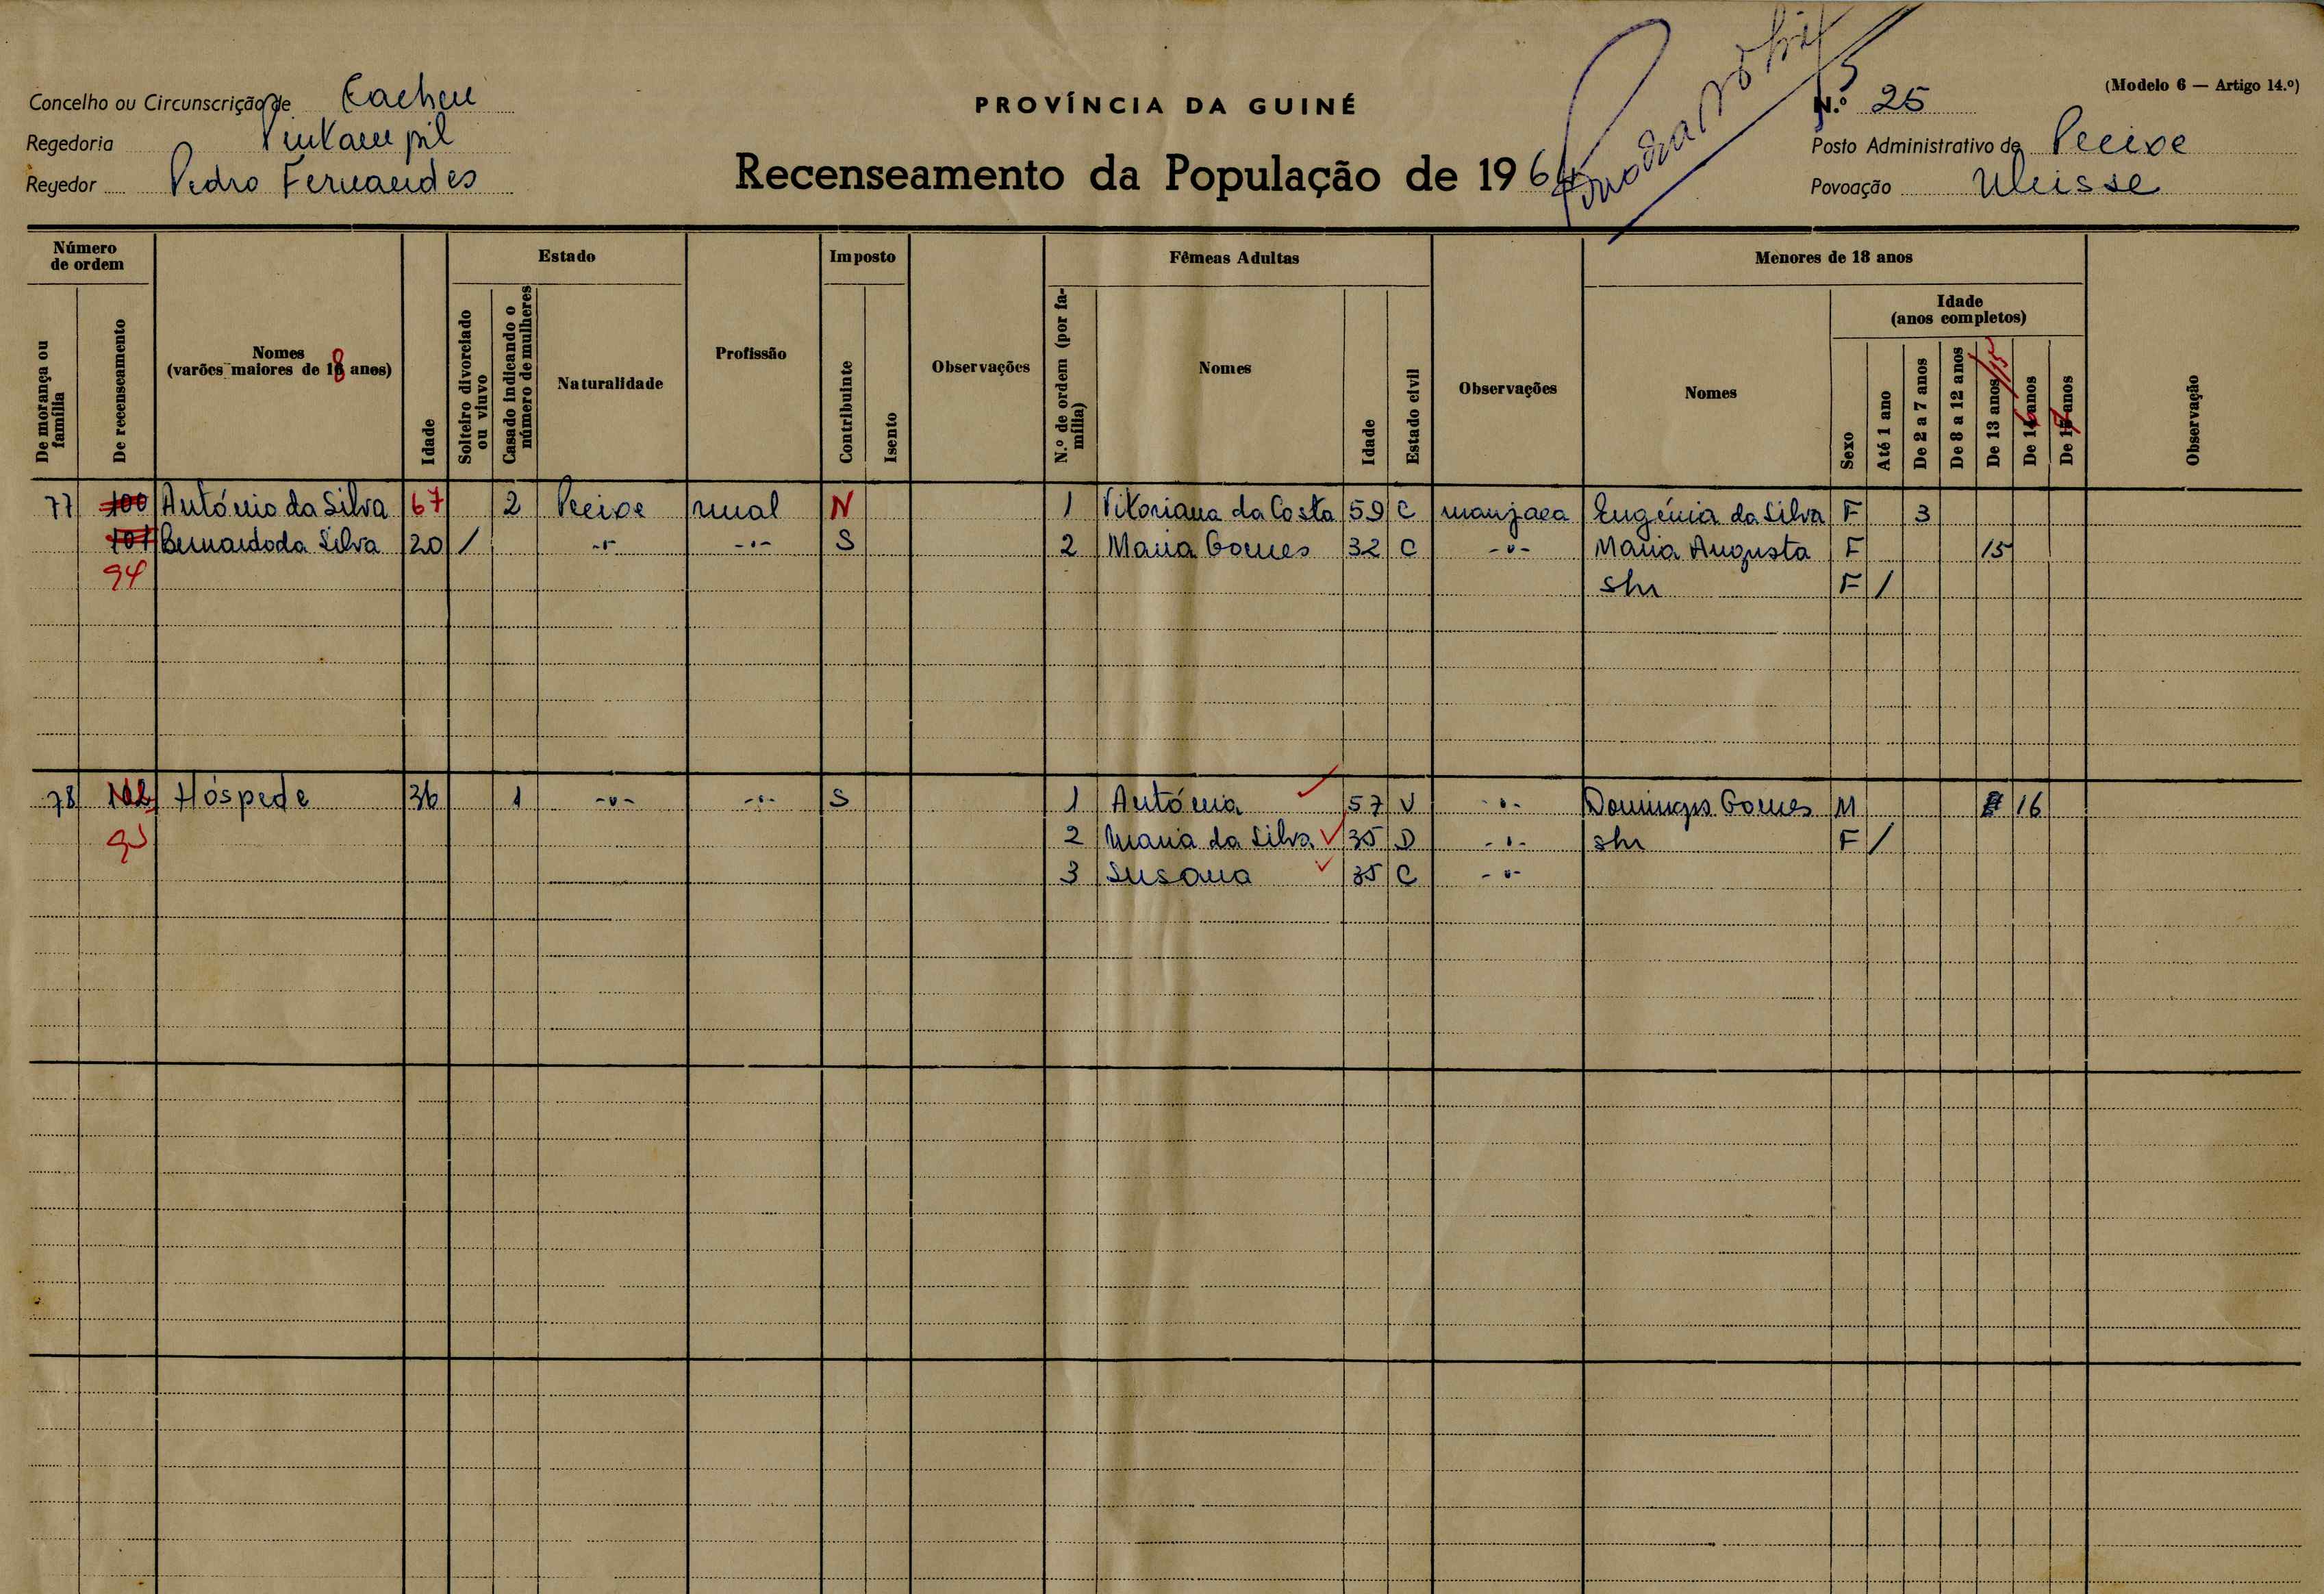 PROVÍNCIA DA GUINÉ
Recenseamento da População de 196
(Modelo 6 — Artigo 14.º)
Concelho ou Circunscrição de Cacheu
Regedoria
Regedor Pedro Fernandes
N.º 25
Posto Administrativo de Pecixe
Povoação
Número de ordem
De morança ou família
De recenseamento
Nomes
(varões maiores de 18 anos)
Idade
Estado
Solteiro divorciado ou viuvo
Casado indicando o número de mulheres
Naturalidade
Profissão
Imposto
Contribuinte
Isento
Observações
Fêmeas Adultas
N.º de ordem (por família)
Nomes
Idade
Estado civil
Observações
Menores de 18 anos
Nomes
Idade
(anos completos)
Sexo
Até 1 ano
De 2 a 7 anos
De 8 a 12 anos
De 13 anos 15
De 16 anos
De 17 anos
Observação
77 100 António da Silva 67 2 Pecixe rural N 1 Vitoriana da Costa 59 C manjaca Eugénia da Silva F 3
101 Bernardo da Silva 20 / -"- -"- S 2 Maria Gomes 32 C -"- Maria Augusta F 15
94 shr F /
78 102 Hóspede 36 1 -"- -"- S 1 Antónia 57 V -"- Domingos Gomes M 16
95 2 Maria da Silva 35 D -"- shr F /
3 Susana 35 C -"-